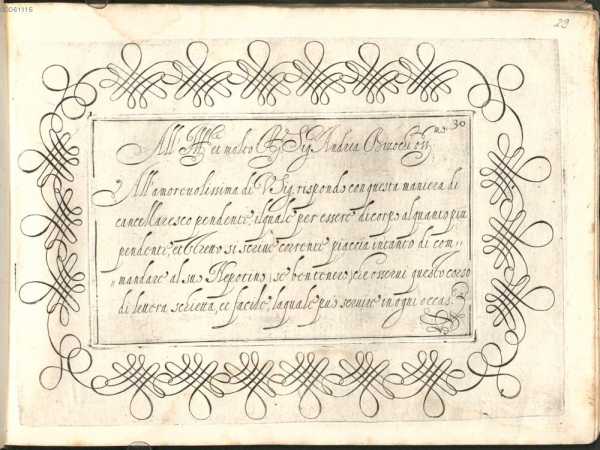 0061115
29
30
All' Ill.re et molto Sig. Andrea ss.mo
All'amoreuolissima di V Sig. rispondo con questa maniera di
cancellaresco pendente, ilquale per essere di corpo alquanto più
pendente, et si scriue corrente piaccia intanto di com-
mandare al suo Nepotino, se ben tenero, che osserui questo corso
di lettera schietta, et facile, laquale può seruire in ogni occas.